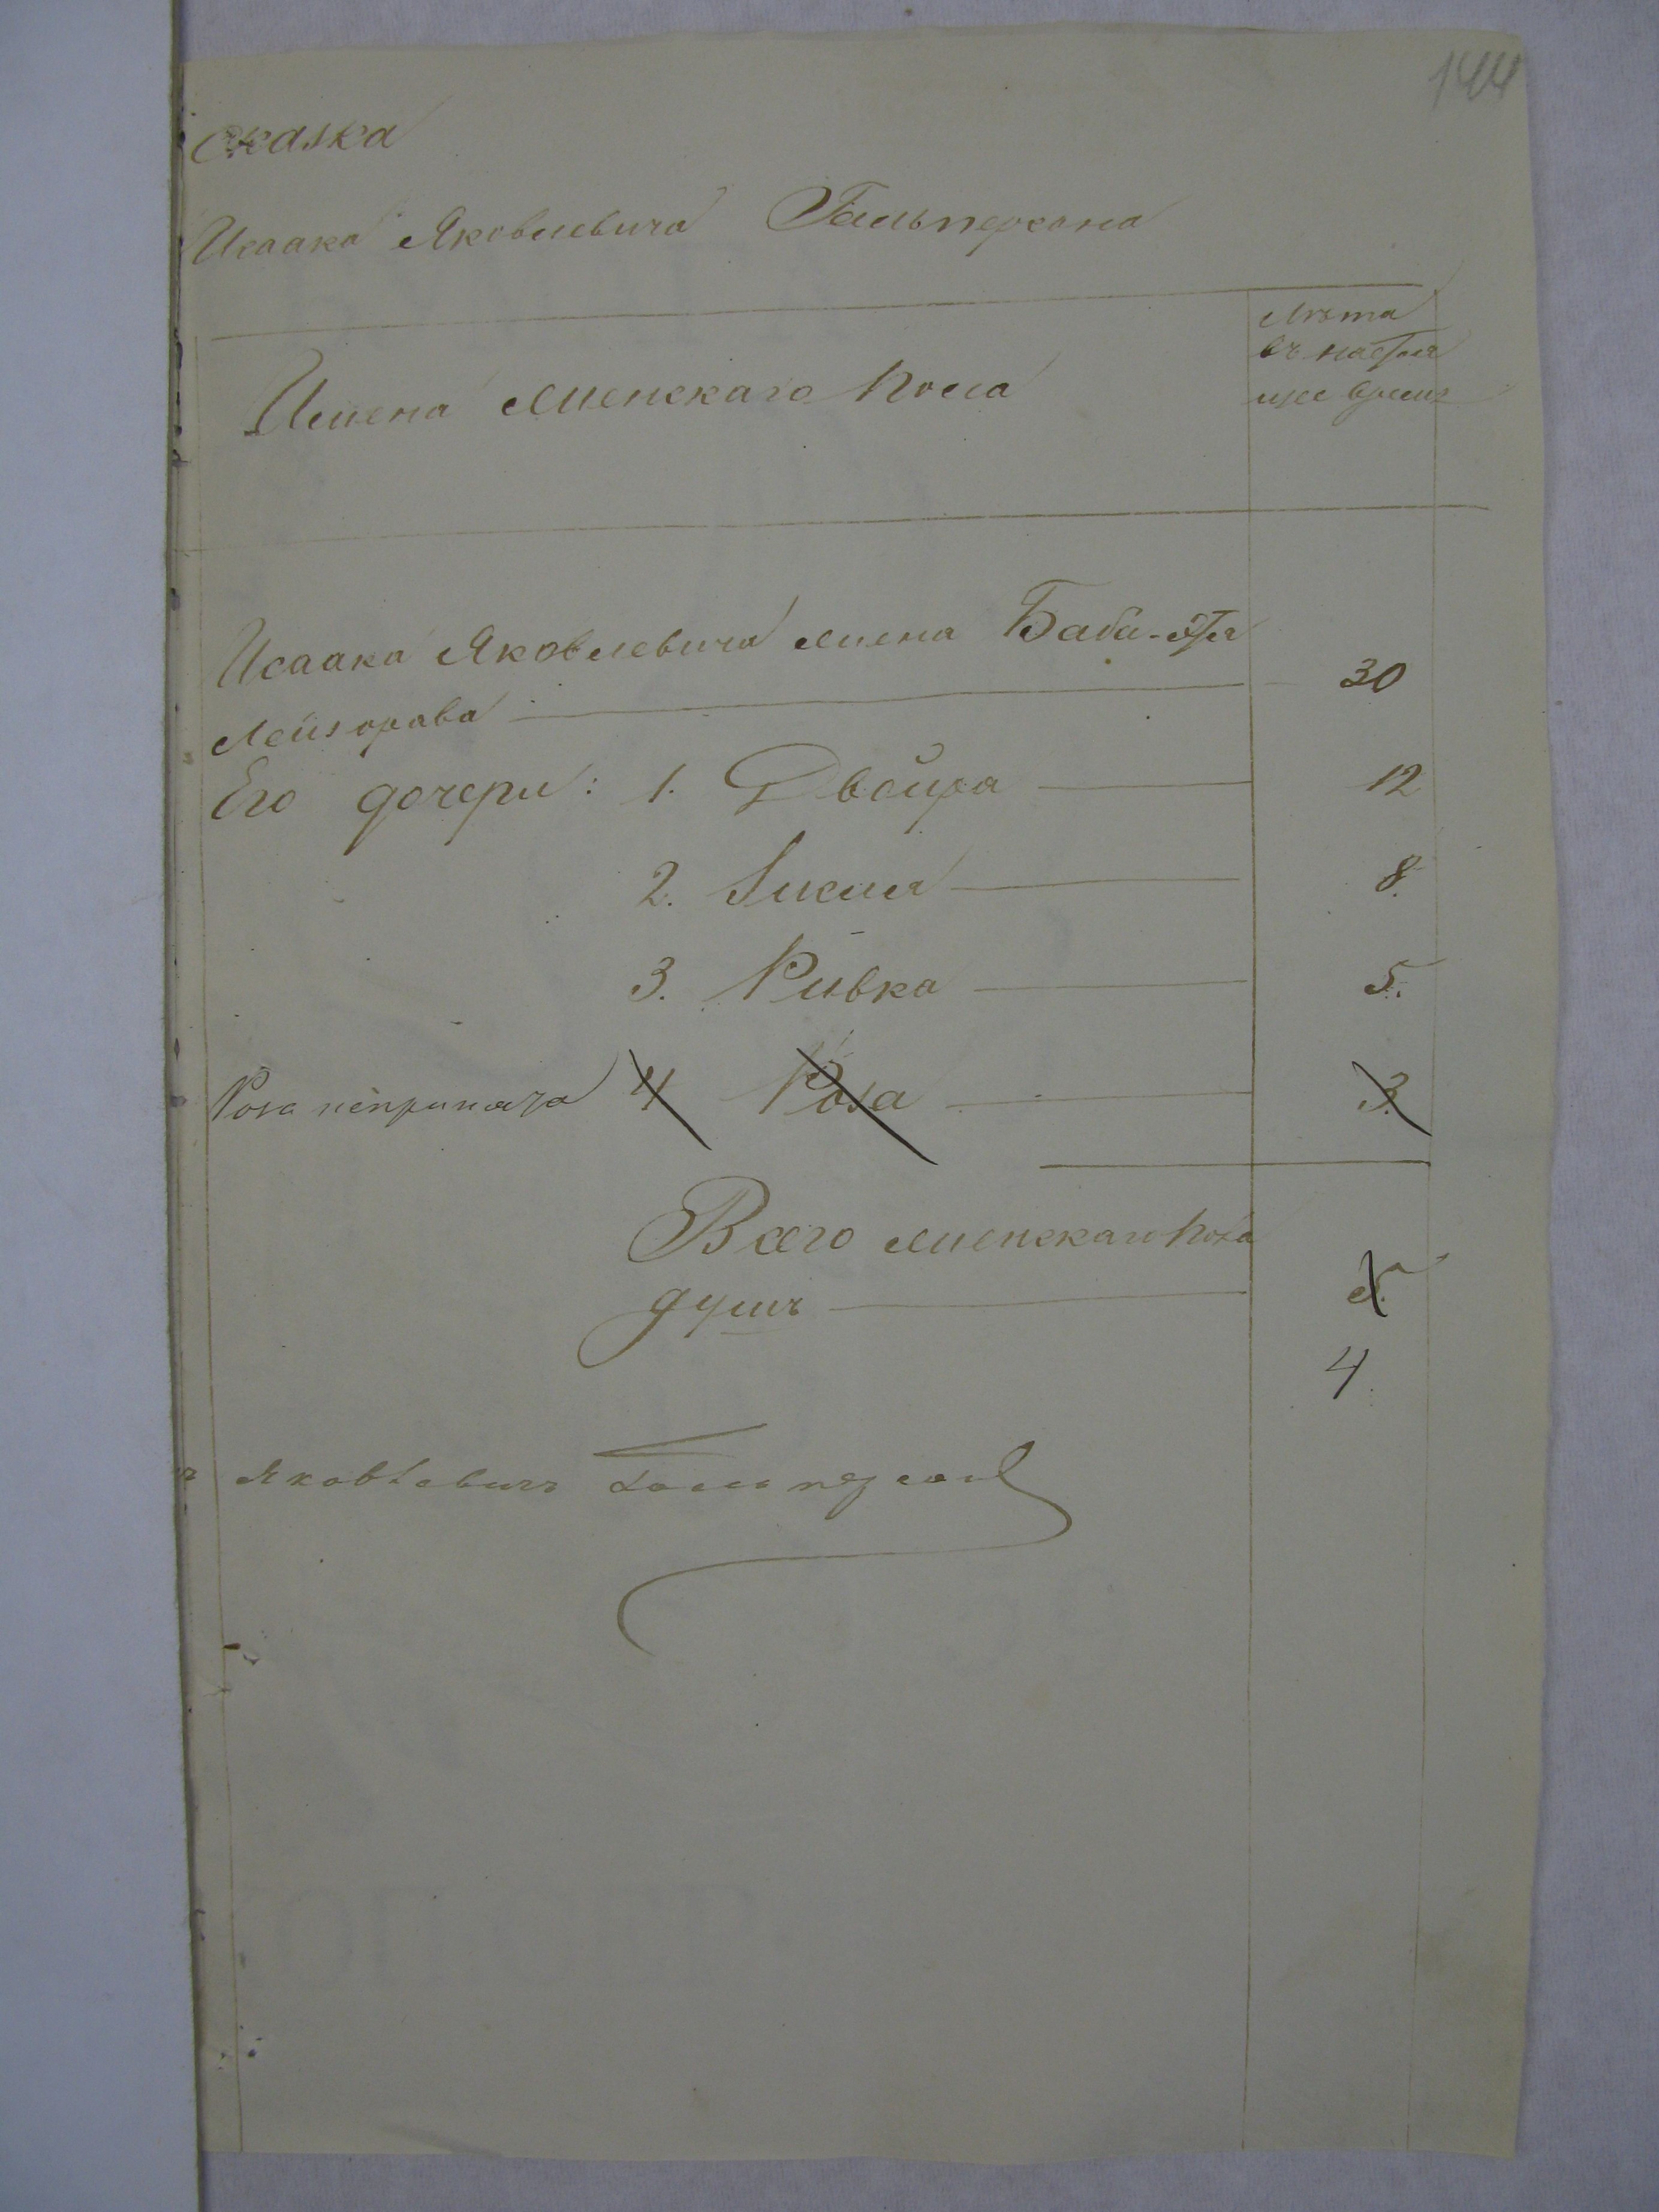 144
Сказка
Исаака Яковлевича Гальперсона
Имена женскаго пола
Лѣта
въ настоя
щее время
Исаака Яковлевича жена Баба-Эта
Лейзорова 30
Его дочери: 1. Двейра 12
2. 8.
3. Ривка 5.
Роза 4 Роза 3.
Всего женскаго пола
душъ 5.
4.
Яковлевичъ Гальперсонъ